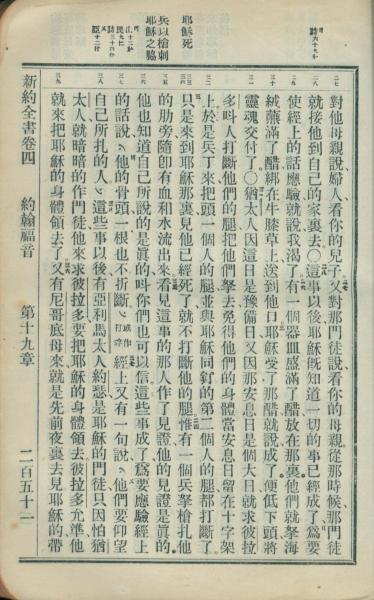 耶穌死
兵以槍刺
耶穌之脇
對他母親說婦人看你的兒子又對那門徒說看你的母親從那時候那門徒
就接他到自己的家裏去○這事以後耶穌旣知道一切的事已經成了爲要
使經上的話應驗就說我渴了有一個器皿盛滿了醋放在那裏他們就拏海
絨蘸滿了醋綁在牛膝草上送到他口耶穌受了那醋就說成了便低下頭將
靈魂交付了○猶太人因這日是豫備日又因那安息日是個大日就求彼拉
多呌人打斷他們的腿把他們拏去免得他們的身體當安息日留在十字架
上於是兵丁來把頭一個人的腿並與耶穌同釘的第二個人的腿都打斷了
只是來到耶穌那裏見他已經死了就不打斷他的腿惟有一個兵拏槍扎他
的肋旁隨卽有血和水流出來看見這事的那人作了見證他的見證是眞的
他也知道自己所說的是眞的呌你們也可以信這些事成了爲要應驗經上
的話說他的骨頭一根也不折斷或作打碎經上又有一句說他們要仰望
自己所扎的人這些事以後有亞利馬太人約瑟是耶穌的門徒只因怕猶
太人就暗暗的作門徒他來求彼拉多要把耶穌的身體領去彼拉多允準他
就來把耶穌的身體領去了又有尼哥底母來就是先前夜裏去見耶穌的帶
新約全書卷四 約翰福音 第十九章 二百五十一